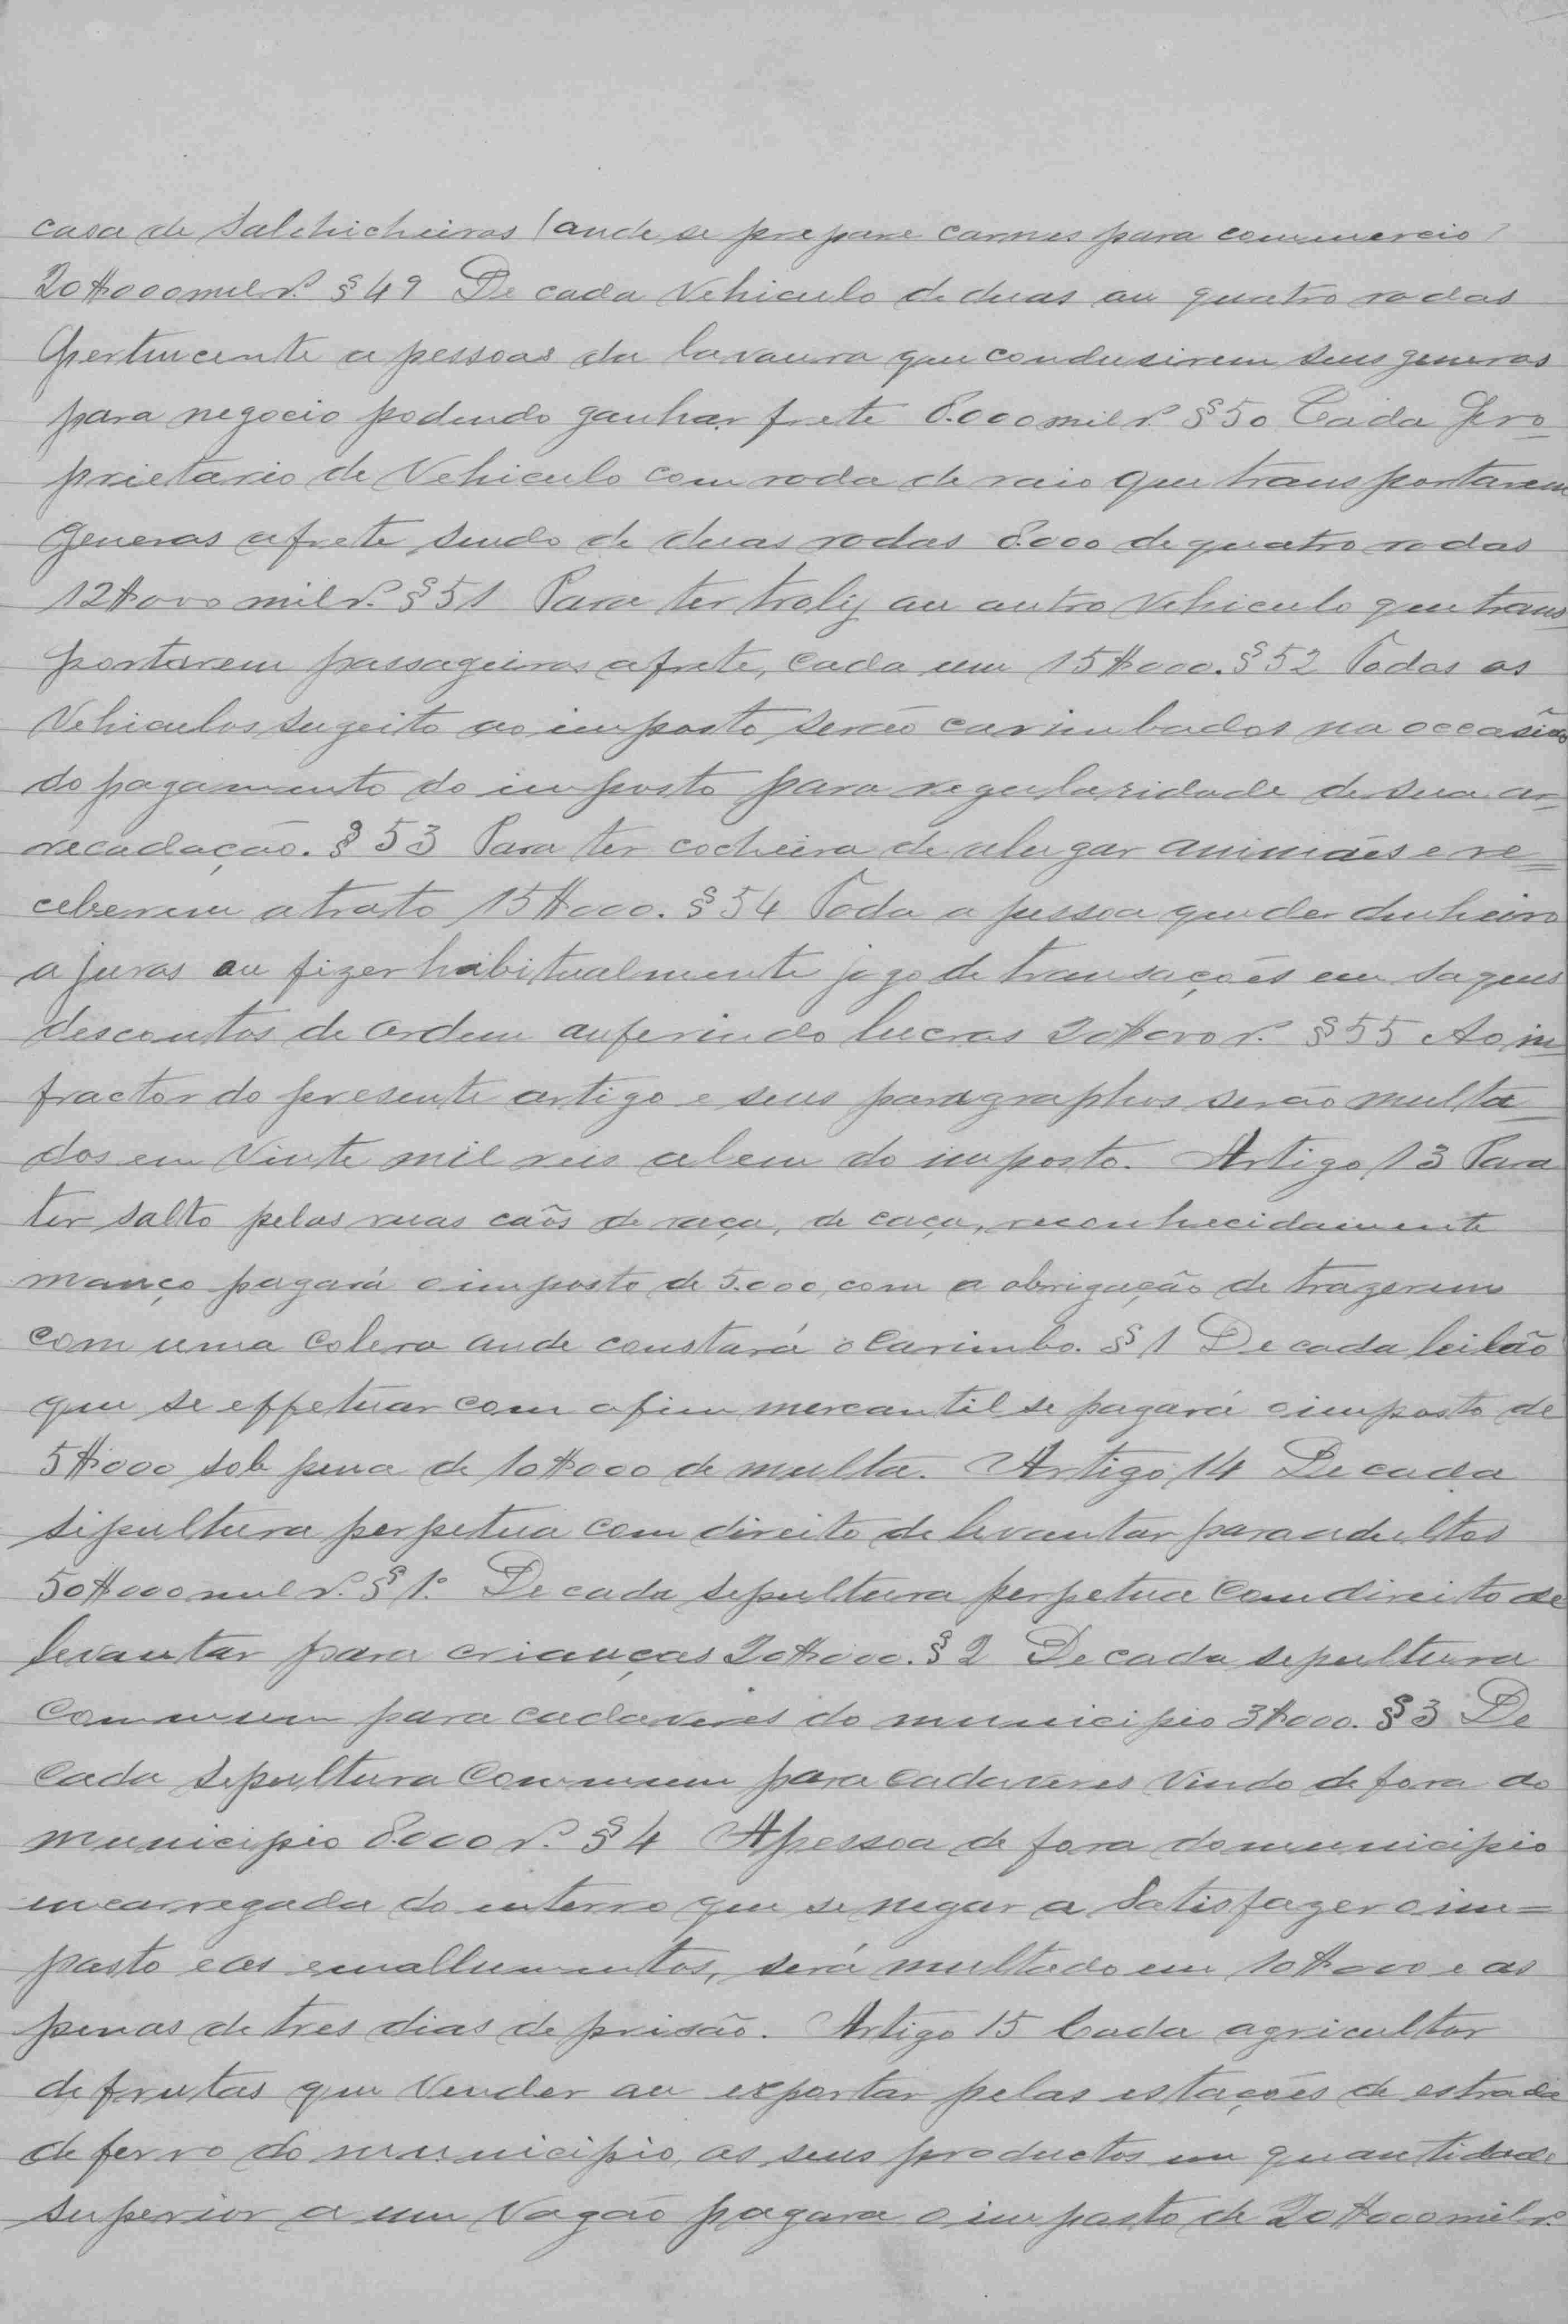 casa de Salchicheiros (onde se prepare carnes para commercio)
20$000 mil r. § 49 De cada Vehiculo de duas ou quatro rodas
pertencente a pessoas da lavoura que condusirem seus generos
para negocio podendo ganhar frete 8.000 mil r. § 50 Cada pro=
prietario de Vehiculo com roda de raio que transportarem
generos a frete, sendo de duas rodas 8.000 de quatro rodas
12$000 mil r. § 51 Para ter troly ou outro Vehiculo que trans=
portarem passageiros a frete, cada um 15$000. § 52 Todos os
Vehiculos sugeito ao imposto serão carimbados na occasião
do pagamento do imposto para regularidade de sua ar=
recadação. § 53 Para ter cocheira de alugar animães e re=
ceberem a trato 15$000. § 54 Toda a pessoa que der dinheiro
a juros ou fizer habitualmente jogo de transações em saques
descontos de ordem auferindo lucros 20$000 r. § 55 Ao in
fractor do presente artigo e seus paragraphos serão multa=
dos em Vinte mil reis alem do imposto. Artigo 13 Para
ter salto pelas ruas cãos de raça, de caça, reconhecidamente
manço pagará o imposto de 5.000, com a obrigação de trazerem
com uma colera onde constará o Carimbo. § 1 De cada leilão
que se effetuar com o fim mercantil se pagará o imposto de
5$000 sob pena de 10$000 de multa. Artigo 14 De cada
sipultura perpetua com direito de levantar para adultos
50$000 mil r. § 1º De cada sepultura perpetua com direito de
levantar para crianças 20$000. § 2 De cada sepultura
Commum para cadaveres do municipio 3$000. § 3 De
Cada sepultura Commum para cadaveres Vindo de fora do
municipio 8.000 r. § 4 A pessoa de fora do municipio
encarregada do enterro que se negar a Satisfazer o im=
posto e os emollumentos, será multado em 10$000 e as
penas de tres dias de prisão. Artigo 15 Cada agricultor
de frutas que Vender ou exportar pelas estações de estrada
de ferro do municipio, os seus productos em quantidade
superior a um Vagão pagara o imposto de 20$000 mil r.